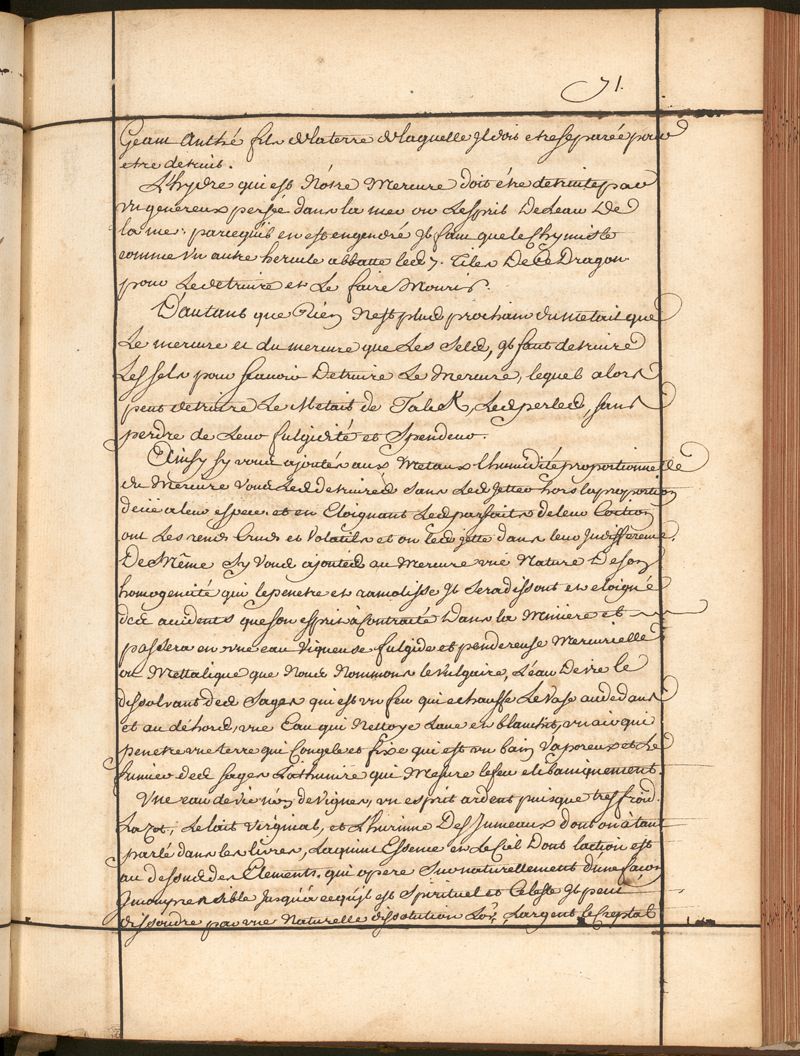 71.
Geant Anthé fils de la terre de laquelle Il dois etre separée pour
etre detruit.
L'hydre qui est Nôtre Mercure doit être detruite par
un genereux persée dans la mer ou Lesprit De Leau De
la mer parcequ'il en est engendré Il faut que le Chymiste
comme un autre hercule abbatte les 7. Têtes De Ce Dragon
pour Le detruire et Le faire Mourir.
D'autans que Rien N'est plus prochain du metail que
Le mercure et du mercure que Les Sels, Il faut detruire
Les sels pour scavoir Detruire Le Mercure, lequel alors
peut detruire Le Metail de Talck, Les perles, sans
perdre de Leur fulgidité et Spendeur.
Ainsy sy vous ajoutés aux Metaux l'humidité proportionnelle
du Mercure Vous Les detruirés sans Les Jetter hors la proportion
deüe a leur espece. et en Eloignant Les parfaits de leur Coction
ont Les rend Cruds et Volatils et on les jette dans leur Indifference.
De Même Sy Vous ajoutés au Mercure une Nature De son
homogeneité qui le penetre et ramolisse Il Sera dissout et eloigné
des accidents que son esprit à Contracté Dans la Miniere et
passera en une eau Visqueuse fulgide et pondereuse Mercurielle
ou Mettalique que Nous Nommons le Vulgaire, L'eau De vie le
dissolvant des Sages qui est un feu qui echauffe Le Vase au dedans
et au déhors, une Eau qui Nettoye Lave et blanchit, un air qui
penetre une terre qui Congele et fixe qui est un bain Vaporeux et Le
fumier des sages L'athanire qui Mesure le feu
Une eau de vie nón de Vignes, un esprit ardent puisque tres froid.
Lazot, Le lait Virginal, et L'hurinne Des Jumeaux dont on à tant
parlé dans les livres, La quint Essence en Le Ciel Dont laction est
au dessus des Elements. qui opere Surnaturellement d'une façon
Jusqu'à ce qu'il est Spirituel et Celeste Il peut
dissoudre par une Naturelle dissolution L'or, L'argent, le Crystal